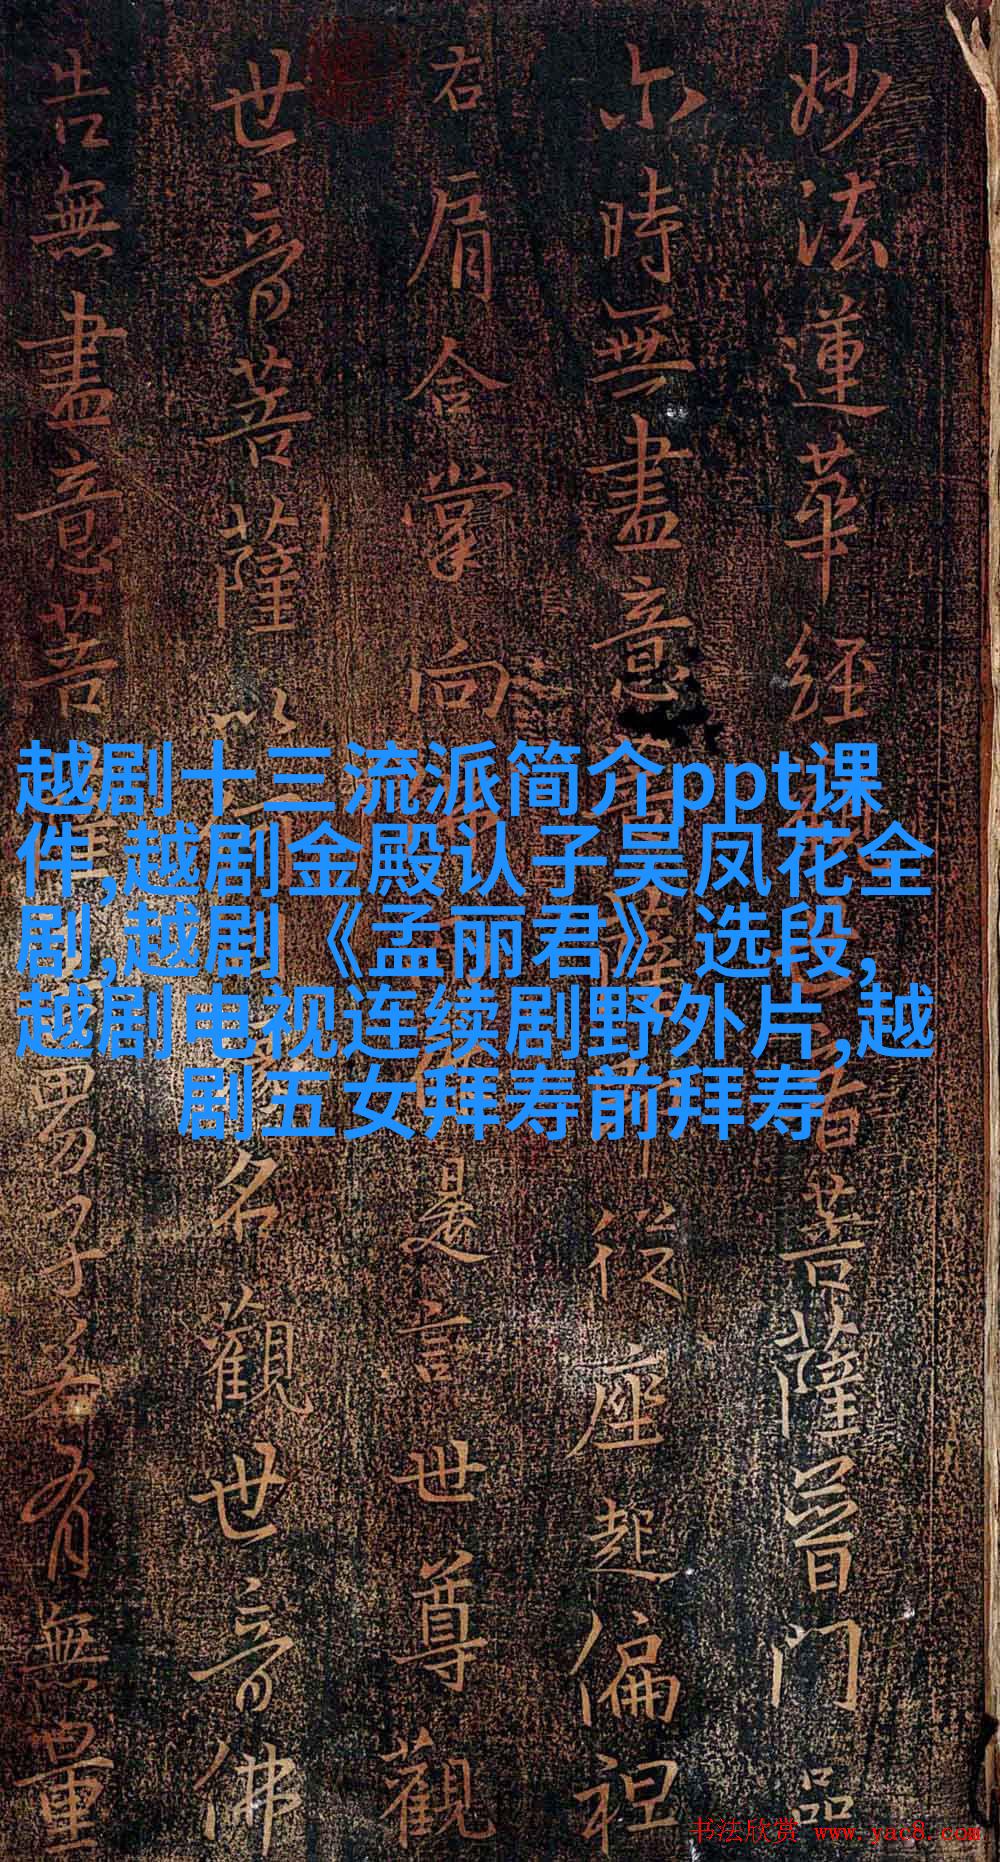 妙法蓮華經音菩薩普門品
尒時無盡意菩薩從座起偏袒
右肩合掌向是言世尊觀
世音菩薩以名觀世音佛
告無盡意菩男子若有無量
越剧十三流派简介ppt课
件,越剧金殿认子吴凤花全
剧,越剧《孟丽君》选段,
越剧电视连续剧野外片,越
剧五女拜寿前拜寿
书法欣赏 www.yac8.com